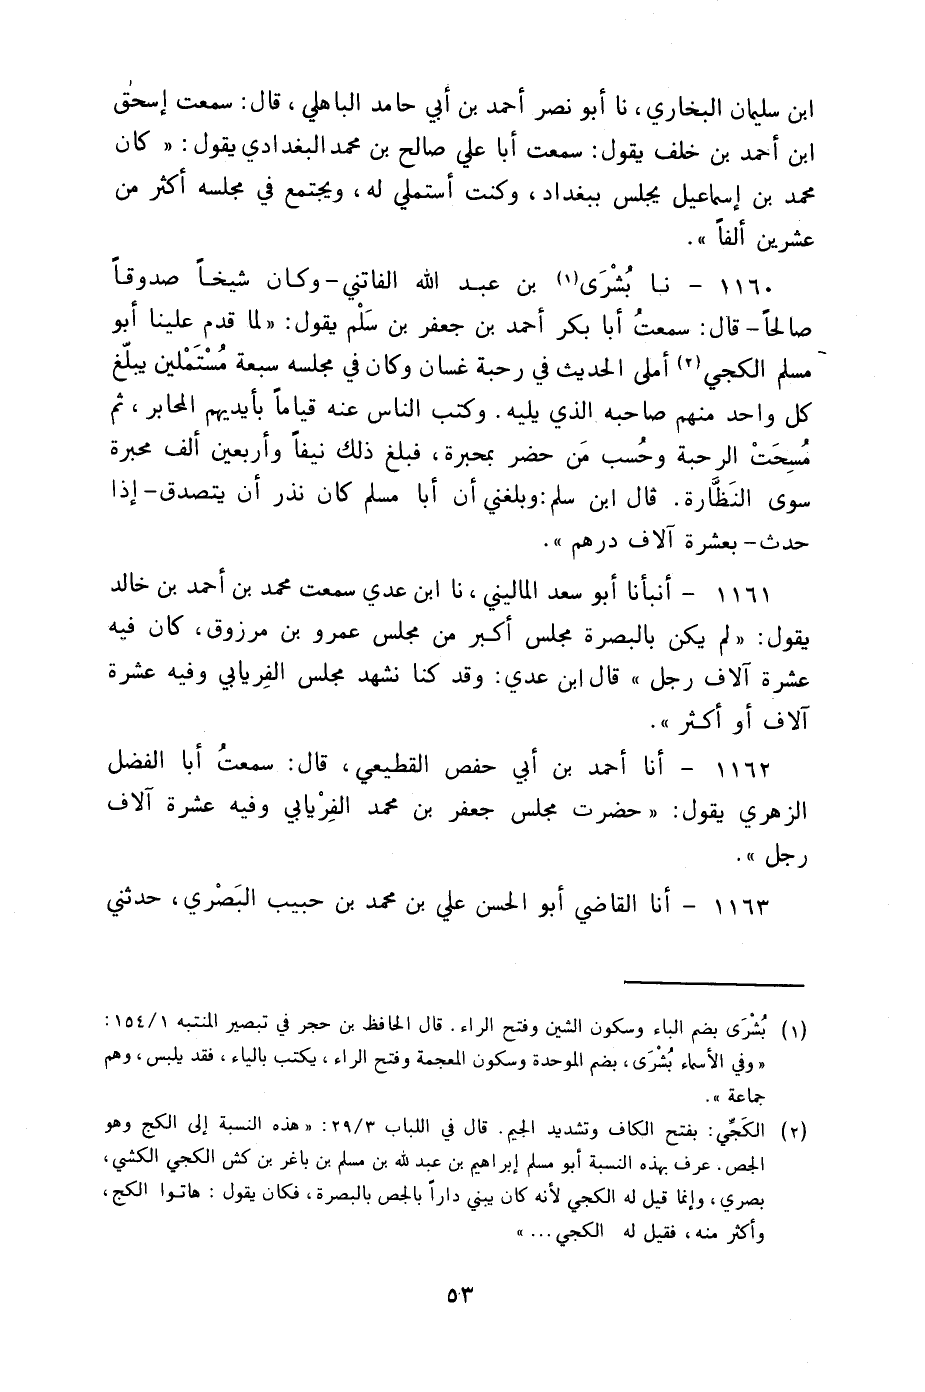 ابن سليمان البخاري، نا أبو نصر أحمد بن أبي حامد الباهلي، قال: سمعت إسحق
ابن أحمد بن خلف يقول: سمعت أبا علي صالح بن محمد البغدادي يقول: « كان
محمد بن إسماعيل يجلس ببغداد، وكنت أستملي له، ويجتمع في مجلسه أكثر من
عشرين ألفاً ».
١١٦٠ - نا بُشْرَى(١) بن عبد الله الفاتني - وكان شيخاً صدوقاً
صالحاً - قال: سمعتُ أبا بكر أحمد بن جعفر بن سَلْم يقول: «لما قدم علينا أبو
مسلم الكجي(٢) أملى الحديث في رحبة غسان وكان في مجلسه سبعة مُسْتَمْلين يبلّغ
كل واحد منهم صاحبه الذي يليه. وكتب الناس عنه قياماً بأيديهم المحابر، ثم
مُسِحَتْ الرحبة وحُسب مَن حضر بمحبرة، فبلغ ذلك نيفاً وأربعين ألف محبرة
سوى النَظَّارة. قال ابن سلم: وبلغني أن أبا مسلم كان نذر أن يتصدق - إذا
حدث - بعشرة آلاف درهم ».
١١٦١ - أنبأنا أبو سعد الماليني، نا ابن عدي سمعت محمد بن أحمد بن خالد
يقول: « لم يكن بالبصرة مجلس أكبر من مجلس عمرو بن مرزوق، كان فيه
عشرة آلاف رجل » قال ابن عدي: وقد كنا نشهد مجلس الفِريابي وفيه عشرة
آلاف أو أكثر ».
١١٦٢ - أنا أحمد بن أبي حفص القطيعي، قال: سمعتُ أبا الفضل
الزهري يقول: « حضرت مجلس جعفر بن محمد الفِرْيابي وفيه عشرة آلاف
رجل ».
١١٦٣ - أنا القاضي أبو الحسن علي بن محمد بن حبيب البَصْري، حدثني
(١) بُشْرَى بضم الباء وسكون الشين وفتح الراء. قال الحافظ بن حجر في تبصير المنتبه ١٥٤/١:
« وفي الأسماء بُشْرَى، بضم الموحدة وسكون المعجمة وفتح الراء، يكتب بالياء، فقد يلبس، وهم
جماعة ».
(٢) الكَجِّي: بفتح الكاف وتشديد الجيم. قال في اللباب ٢٩/٣: « هذه النسبة إلى الكج وهو
الجص. عرف بهذه النسبة أبو مسلم إبراهيم بن عبد لله بن مسلم بن باغر بن كش الكجي الكشي،
بصري، وإنما قيل له الكجي لأنه كان يبني داراً بالجص بالبصرة، فكان يقول: هاتوا الكج،
وأكثر منه، فقيل له الكجي... »
٥٣